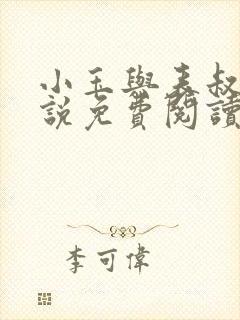 小玉與表叔
說免費閱讀
李可偉